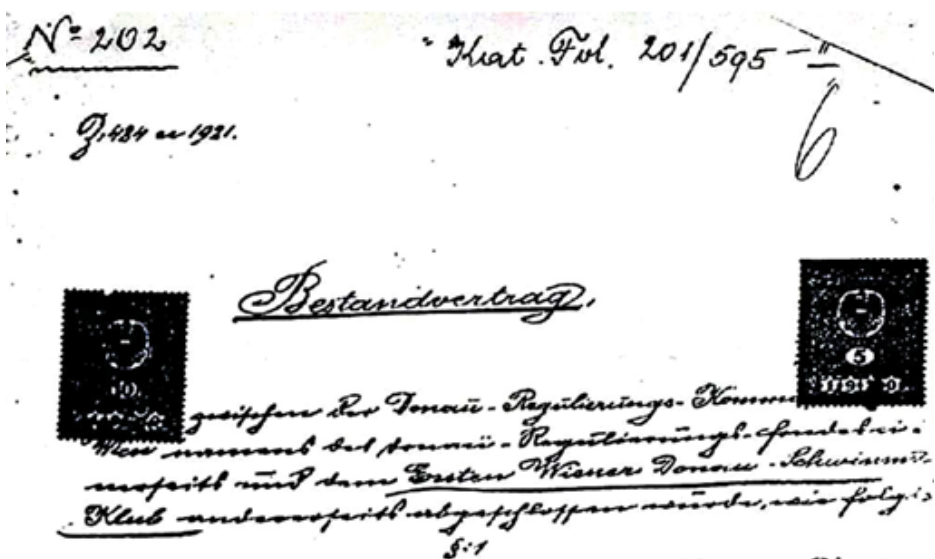 Nº 202
Kat. Fol. 201/595 - II
6
Z. 484 ex 1921.
Bestandvertrag,
5
zwischen der Donau-Regulierungs-Kommi
Wien namens des Donau-Regulierungs-Fondes ei-
nerseits und dem Ersten Wiener Donau-Schwimm-
Klub andererseits abgeschlossen wurde, wie folgt:
§: 1